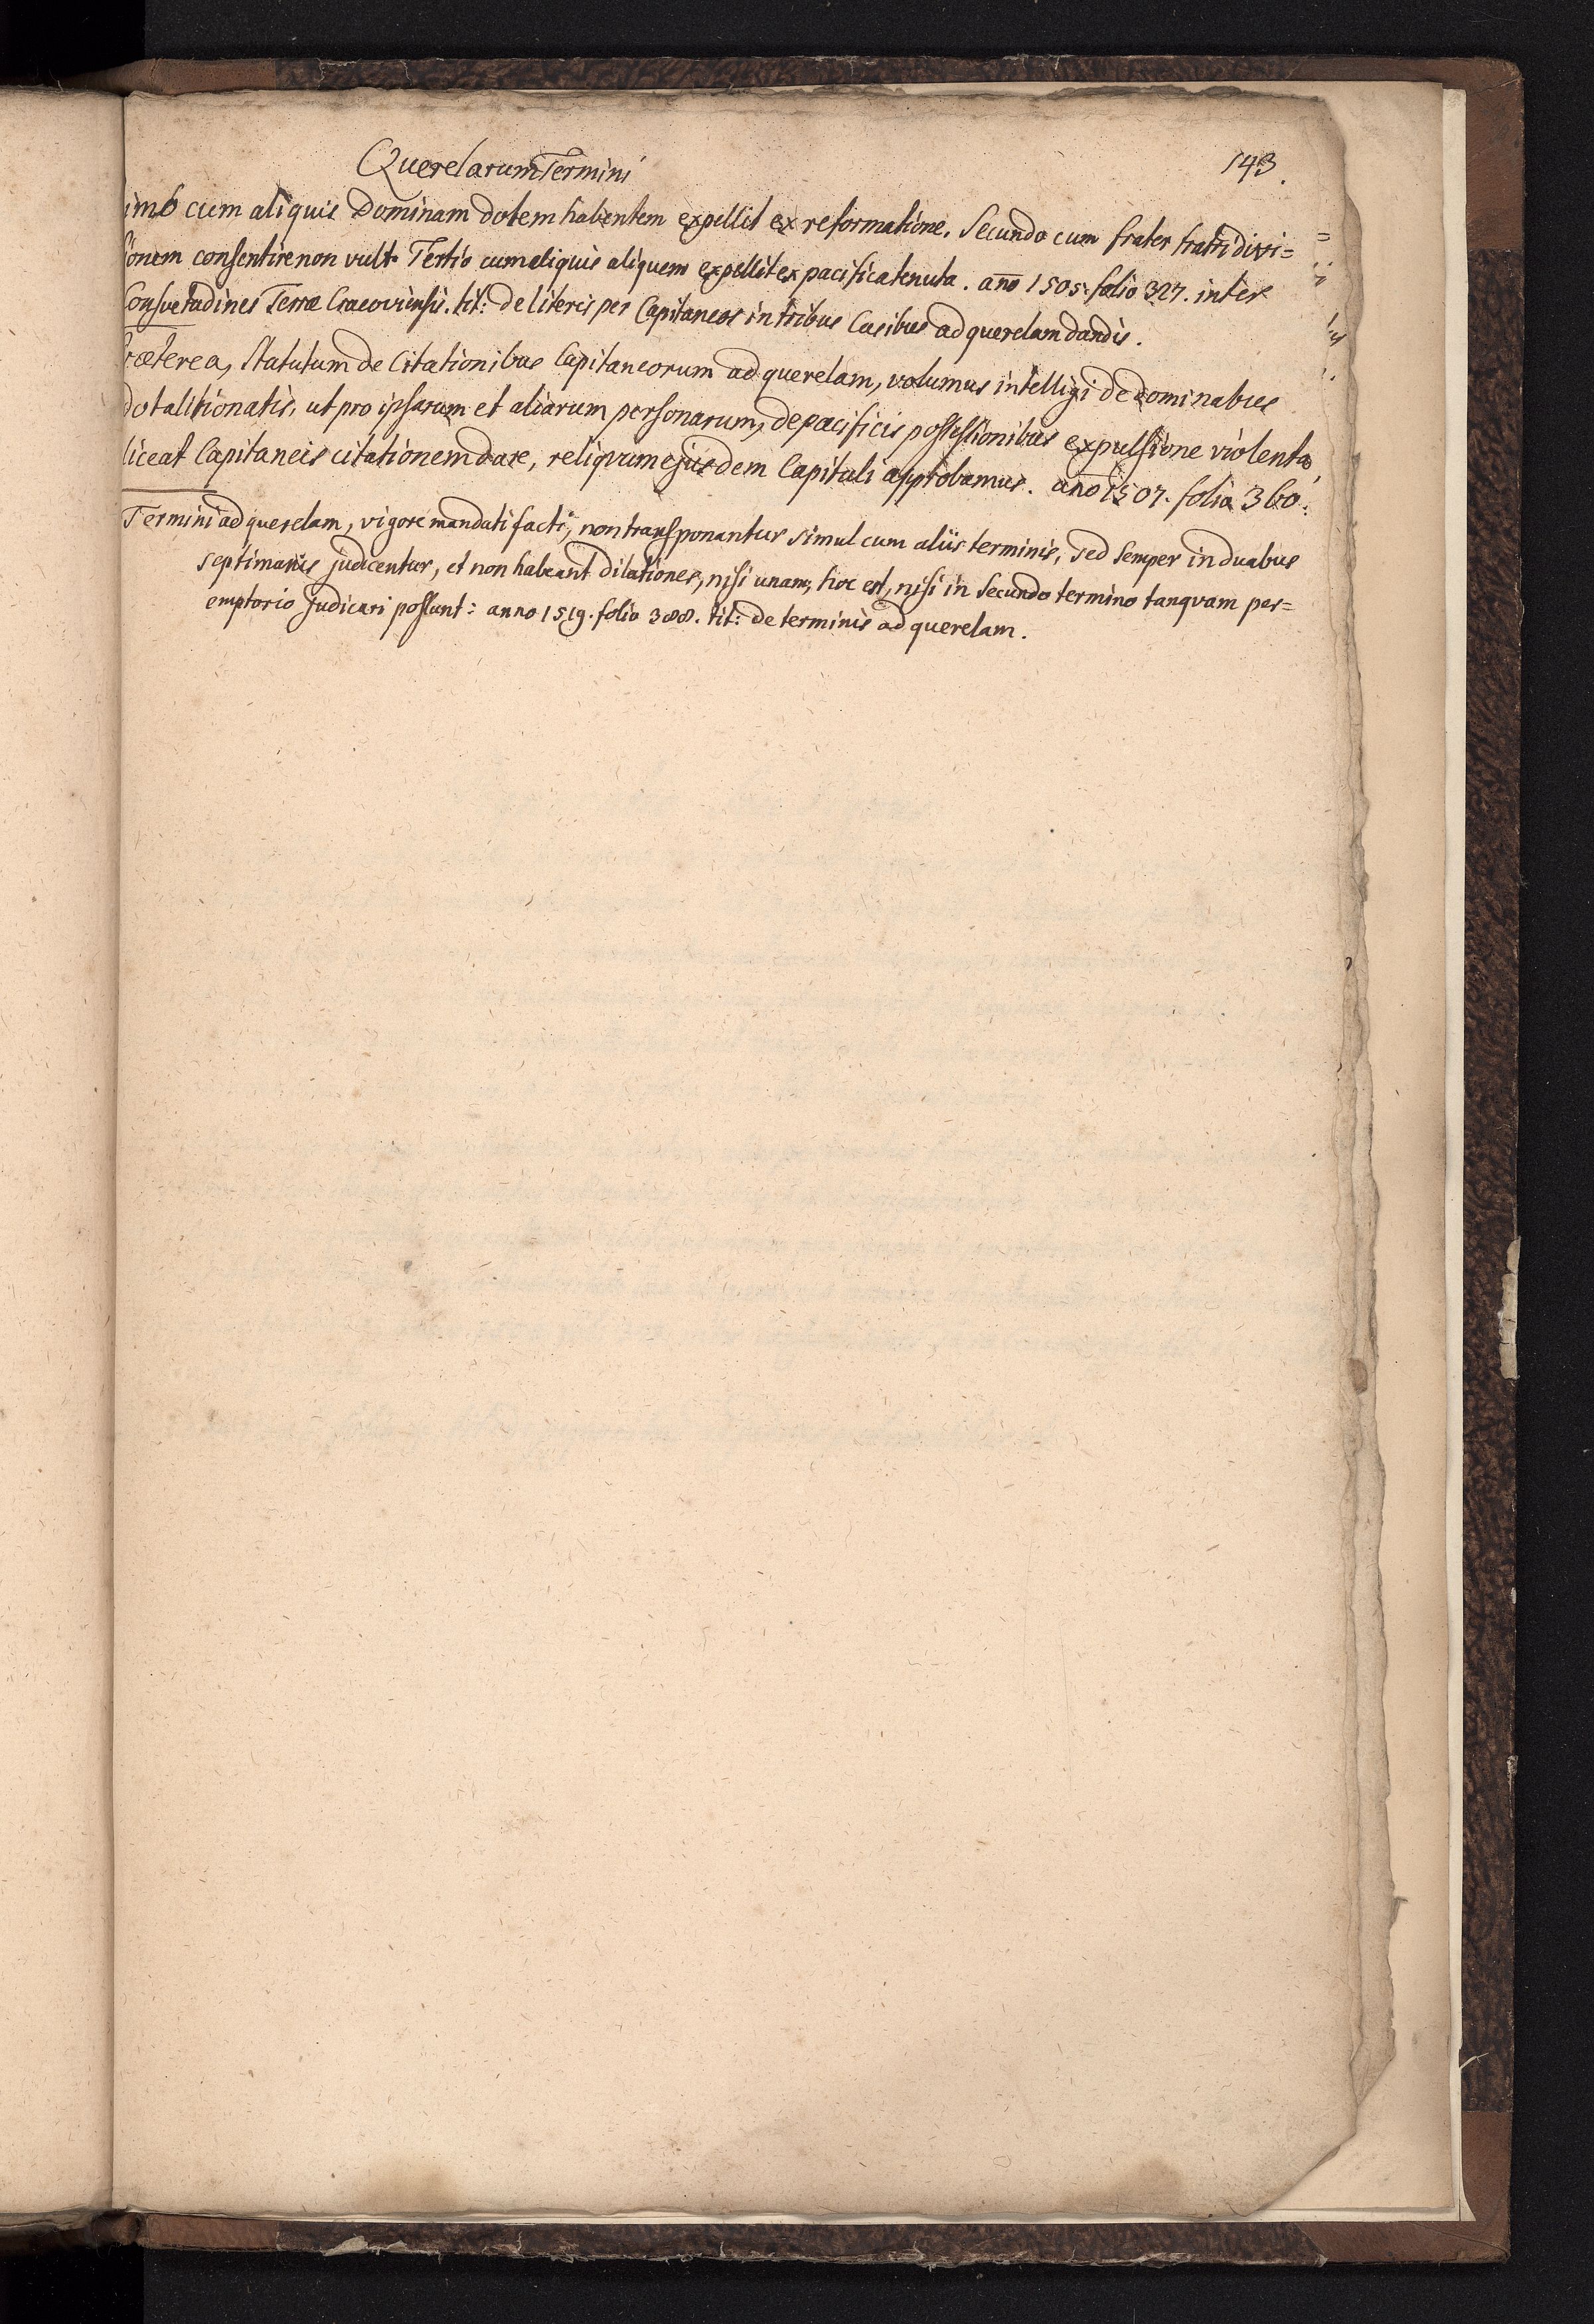 Querelarum Termini
143.
imò cum aliquis Dominam dotem habentem expellit ex reformatione. Secundo cum frater fratri divi=
sionem consentire non vult. Tertio cum aliquis aliquem expellit ex pacifica tenuta. año 1505. folio 327. inter
Consvetudines Terræ Cracoviensis. tit: de literis per Capitaneos in tribus Casibus ad querelam dandis.
Præterea, Statutum de Citationibus Capitaneorum ad querelam, volumus intelligi de dominabus
dotalitionatis, ut pro ipsarum et aliarum personarum, de pacificis possessionibus expulsione violenta,
liceat Capitaneis citationem dare, reliqvum ejusdem Capituli approbamus. año 1507. folio 360.
Termini ad querelam, vigore mandati facti, non transponantur simul cum aliis terminis, sed semper in duabus
septimanis judicentur, et non habeant dilationes, nisi unam, hoc est, nisi in Secundo termino tanqvam per=
emptorio Judicari possunt: anno 1519. folio 388. tit: de terminis ad querelam.